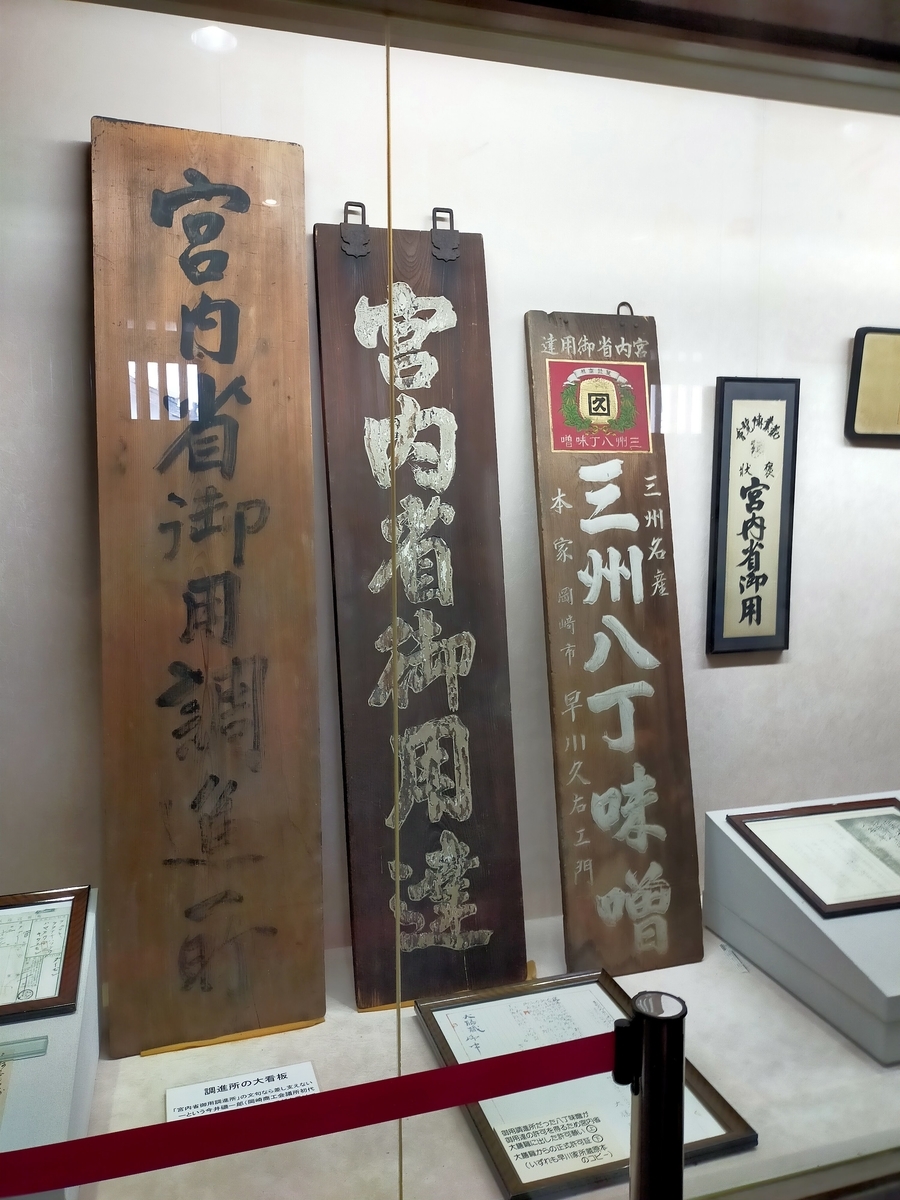 宮内省御用調進所
宮内省御用達
宮内省御用達
久
三州八丁味噌
三州名産
三州八丁味噌
本家 岡崎市 早川久右エ門
褒状
宮内省御用
調進所の大看板
「宮内省御用調進所」の文句なら差し支えない
御用調進所だった八丁味噌が
御用達の許可を得るため宮内省
大膳寮に出した許可願い(上)
大膳寮からの正式許可証(下)
(いずれも早川家所蔵原本
のコピー)